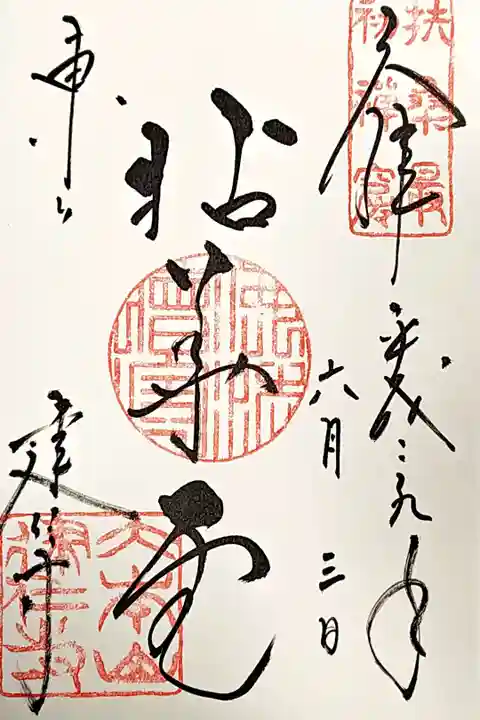 扶桑最
初禅窟
参拝 平成二九年
六月三日
拈華堂
東山
建仁寺
大本山
建仁寺